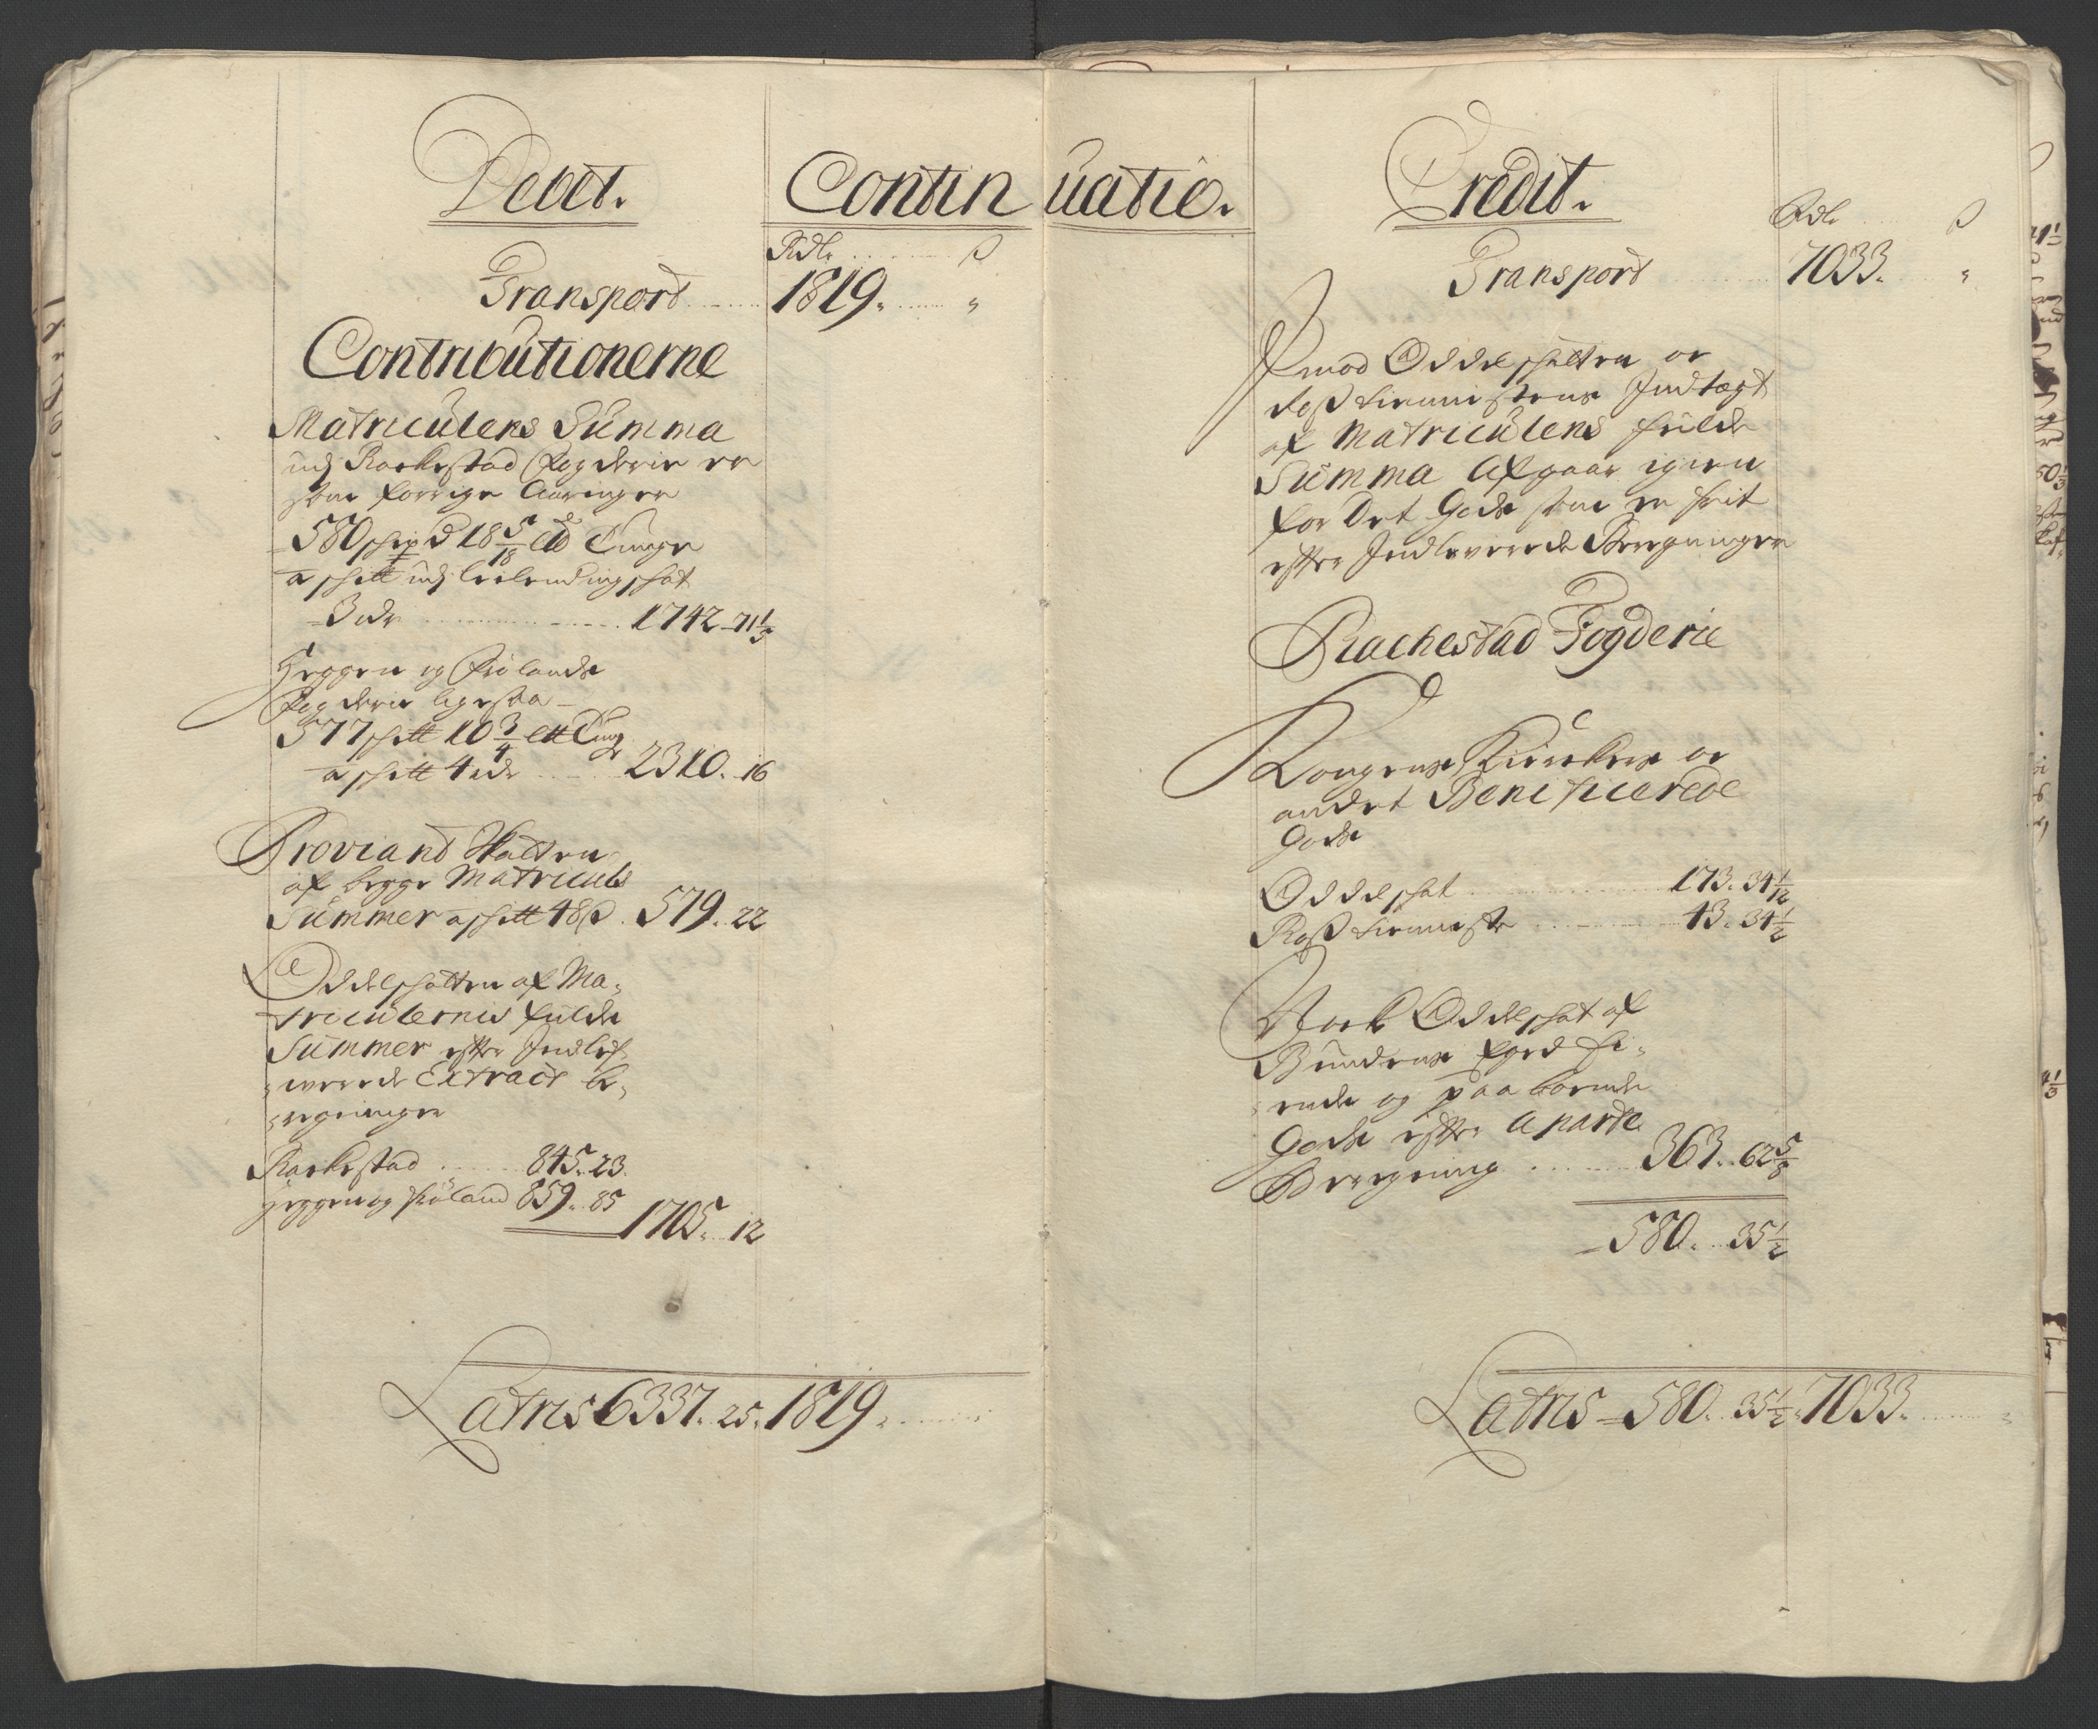 Debet.
Continuatio.
Rdlr ß
Transport 1819. "
Contributionerne
Matriculens Summa
udj Rackestad Fogderie er
som forrige Aaringer
580 schip℔ 18 5/18 ℔ Tunge
a schitt udj Leilendingschat
3 rdr 1742 - 71 1/3
Heggen og Frølands
Fogderie ligesaa
577 schitt 10 3/4 Ltt Tunge
a schitt 4 rdr 2310. 16
Proviand Skatten
af begge Matriculs
Summer a schitt 48 ß. 579. 22
Oddelschatten af Ma-
triculernis fulde
Summer efter Indlef-
werede Extract be-
regninger
Rackestad 845. 23.
Heggen og Frøland 859. 85
1705. 12
Latris 6337. 25. 1819.
Credit.
Rdlr ß
Transport 7033. "
Imod Oddelschatten oc
Rostiennistens Indtægt
af Matriculens fulde
Summa Afgaar igien
for Det Gods som er frit
efter Indleverede Beregninger
Rachestad Fogderie
Kongens Kirckens oc
andet Benificerede
Gods
Oddelschat 173. 34 1/12
Rostienniste 43. 34 1/2
Nock Oddelschat af
Bundens Eged Ei-
ende og paaboende
Gods efter aparte
Beregning 363. 62 5/8
580. 35 1/2
Latris 580. 35 1/2. 7033. "